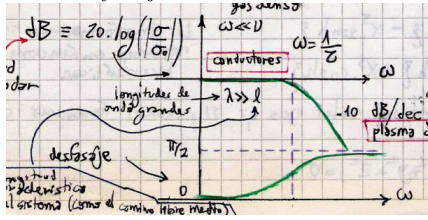 gas denso
dB ≡ 20.log(|σ/σ₀|)
ω<<ν
ω=1/τ
conductores
ω
longitudes de
onda grandes
λ>>l
-10 dB/dec
plasma
π/2
desfasaje
0
ω
sistema (como el camino libre medio)